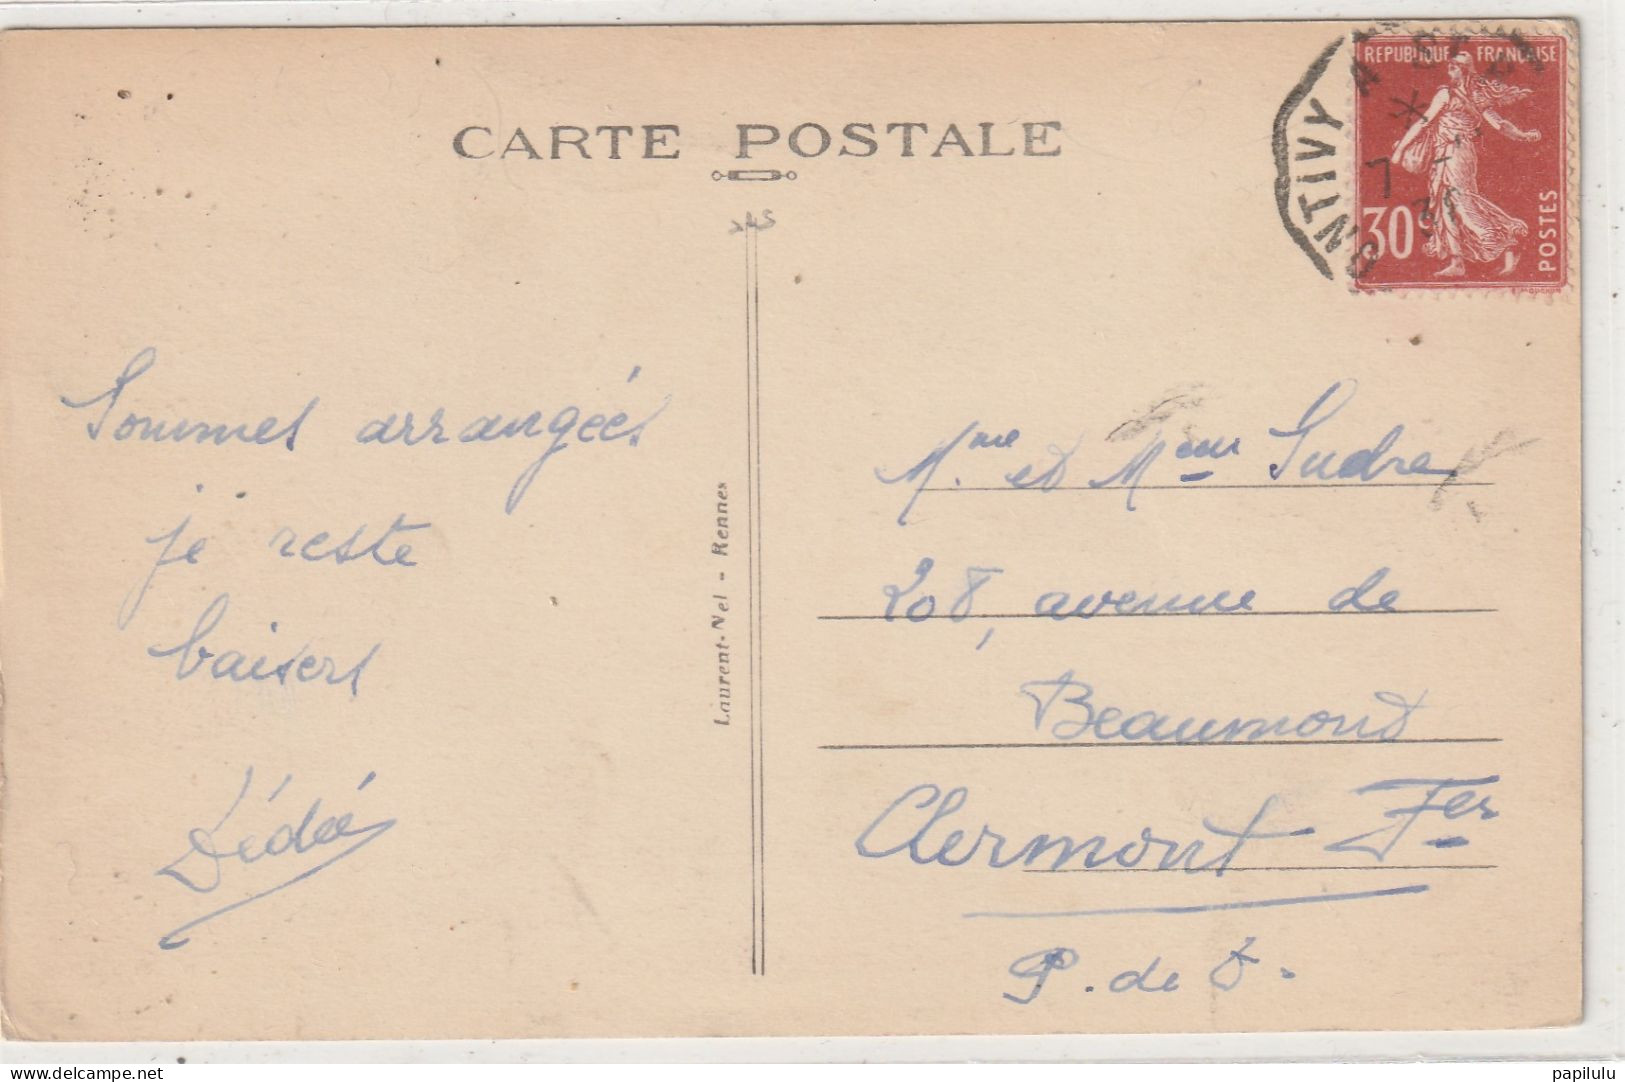 CARTE POSTALE
REPUBLIQUE FRANÇAISE
30c
POSTES
ONTIVY A
7
Laurent-Nel - Rennes
Sommes arrangées
je reste
baisers
Dédé
Mme et Mr Sudre
208, avenue de
Beaumont
Clermont Fer
P. de D.
delcampe.net
papilulu